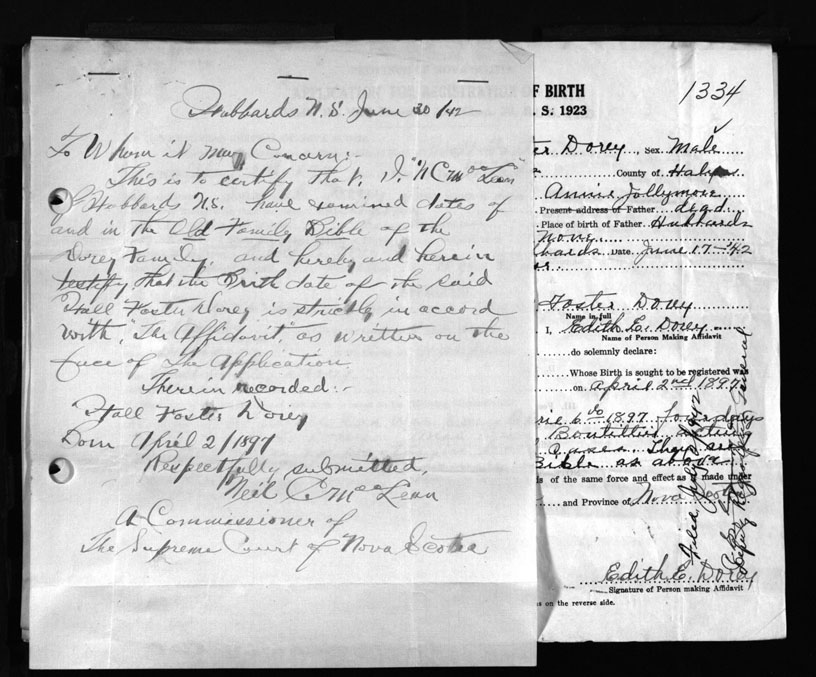 Hubbards N.S. June 30/42
To Whom it may Concern:-
This is to certify that, I, "N C MacLean"
of Hubbards N.S. have examined dates of
and in the Old Family Bible of the
Dorey Family, and hereby and herein
testify that the Birth date of the said
Hall Foster Dorey is strictly in accord
with, "The Affidavit", as written on the
face of The Application.
Therein recorded:-
Hall Foster Dorey
Born April 2/1897
Respectfully submitted,
Neil C MacLean
A Commissioner of
The Supreme Court of Nova Scotia
OF BIRTH
S: 1923
1334
Dorey, Sex Male
County of
Annie Jollymore
Present address of Father dead
Place of birth of Father Hubbards
Date June 17-42
Foster Dorey
Name in full
I, Edith E. Dorey
Name of Person Making Affidavit
do solemnly declare:
Whose Birth is sought to be registered was
on April 2nd 1897
1897 four days
Bible as above
of the same force and effect as if made under
and Province of Nova Scotia
Filed July 2 1942
Deputy Registrar General
Edith E. Dorey
Signature of Person making Affidavit
on the reverse side.